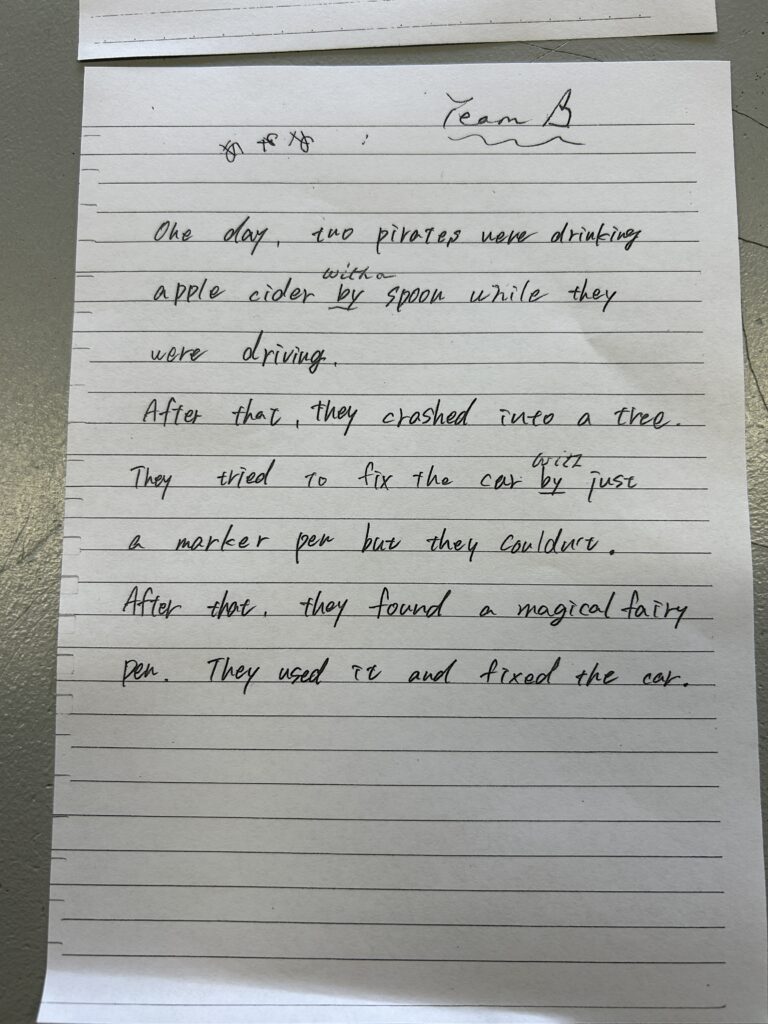 Team B
One day, two pirates were drinking
with a
apple cider by spoon while they
were driving.
After that, they crashed into a tree.
with
They tried to fix the car by just
a marker pen but they couldn't.
After that, they found a magical fairy
pen. They used it and fixed the car.